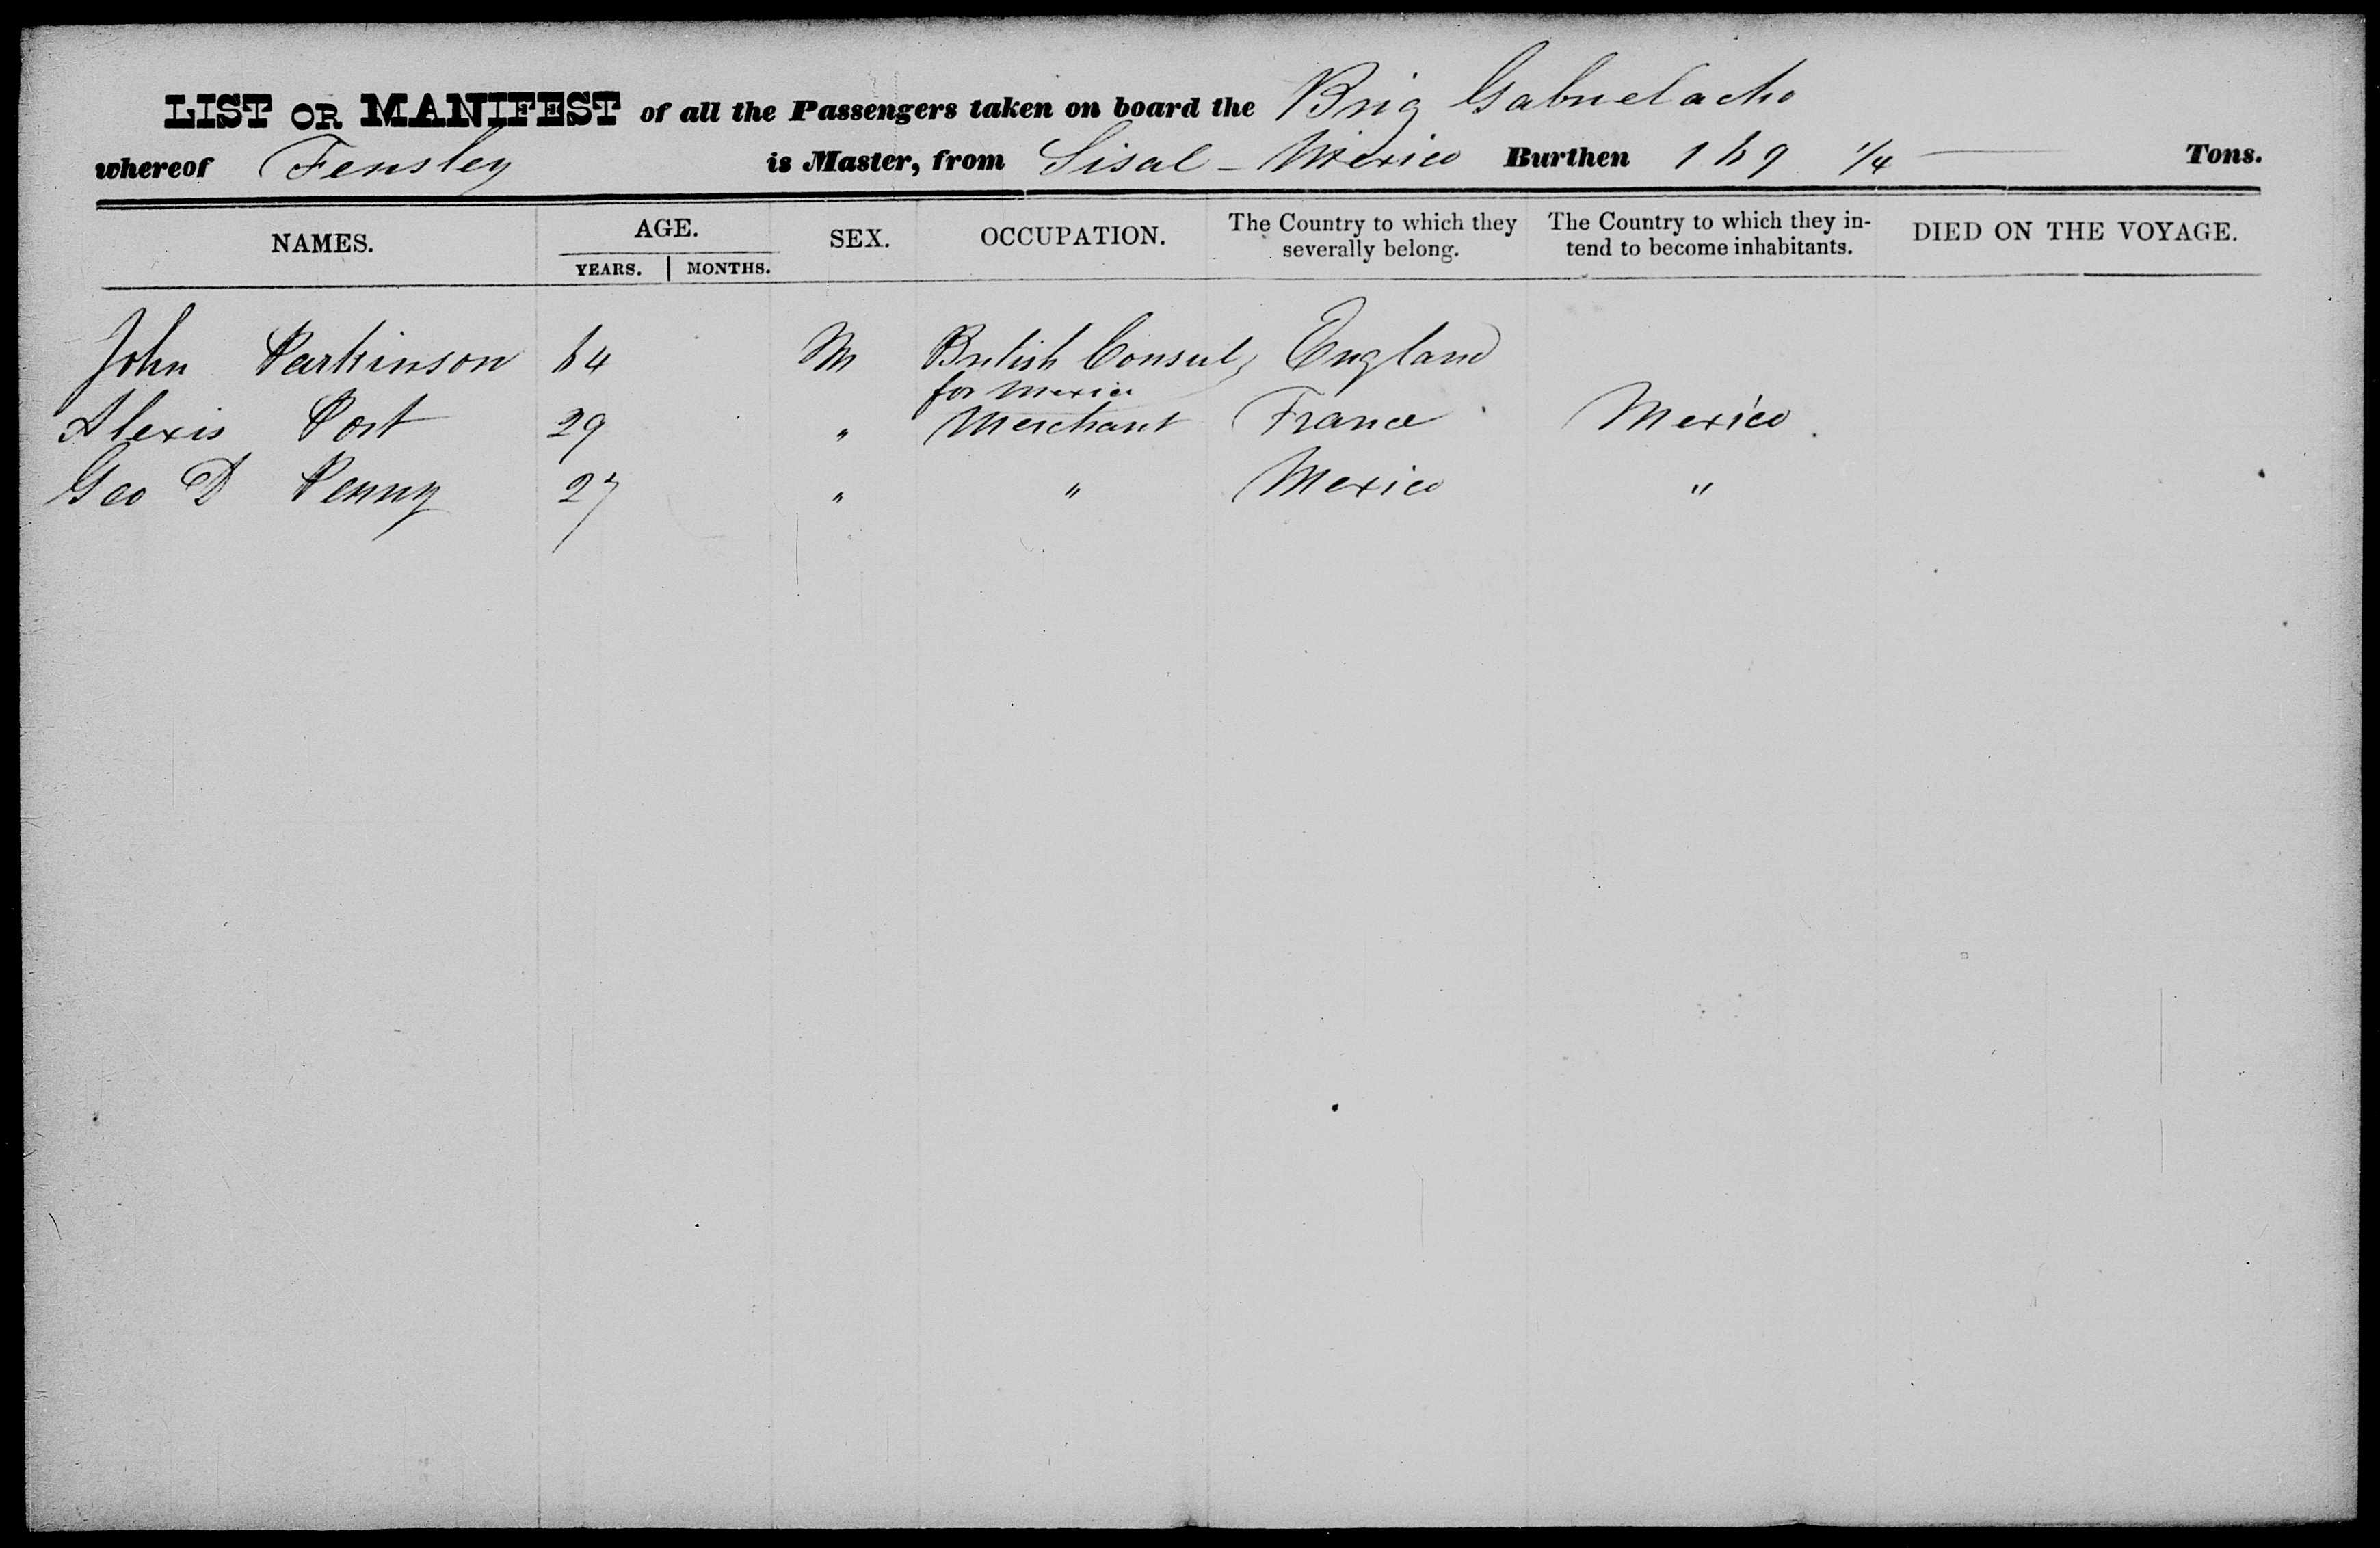 LIST OR MANIFEST of all the Passengers taken on board the Brig Gabrielacho
whereof Fensley is Master, from Sisal - Mexico Burthen 169 1/4 Tons.
NAMES. AGE. SEX. OCCUPATION. The Country to which they severally belong. The Country to which they in-tend to become inhabitants. DIED ON THE VOYAGE.
YEARS. | MONTHS.
John Parkinson 64 M British Consul, England
for Mexico
Alexis Port 29 " Merchant France Mexico
Geo D Penny 27 " " Mexico "